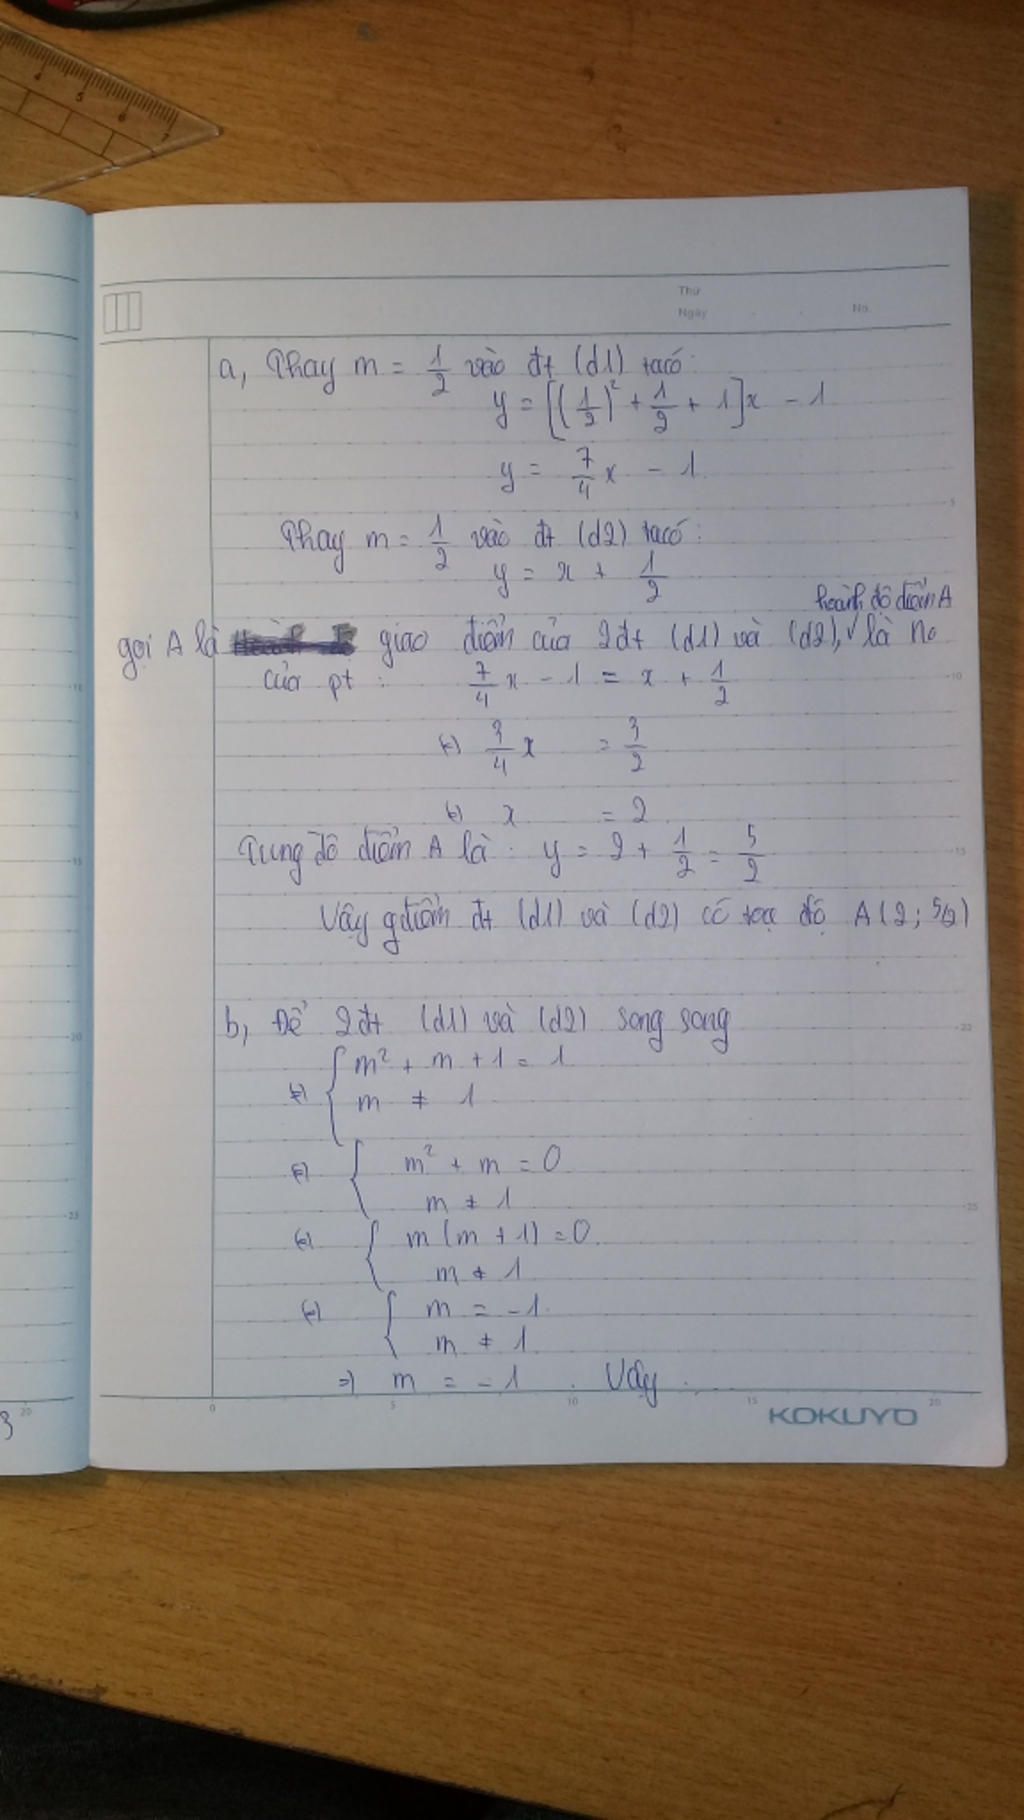 4 5 6 7
Thứ
Ngày
No.
a, Thay m = 1/2 vào đt (d1) ta có:
y = [(1/2)² + 1/2 + 1]x - 1
y = 7/4 x - 1
Thay m = 1/2 vào đt (d2) ta có:
y = x + 1/2
hoành độ điểm A
gọi A là giao điểm của 2 đt (d1) và (d2), √ là no
của pt : 7/4 x - 1 = x + 1/2
(=) 3/4 x = 3/2
(=) x = 2
Tung độ điểm A là : y = 2 + 1/2 = 5/2
Vậy gđiểm đt (d1) và (d2) có toạ độ A(2; 5/2)
b, Để 2 đt (d1) và (d2) song song
(=) { m² + m + 1 = 1
m ≠ 1
(=) { m² + m = 0
m ≠ 1
(=) { m (m + 1) = 0
m ≠ 1
(=) { m = -1
m ≠ 1
=) m = -1 . Vậy ...
0 5 10 15 20
KOKUYO